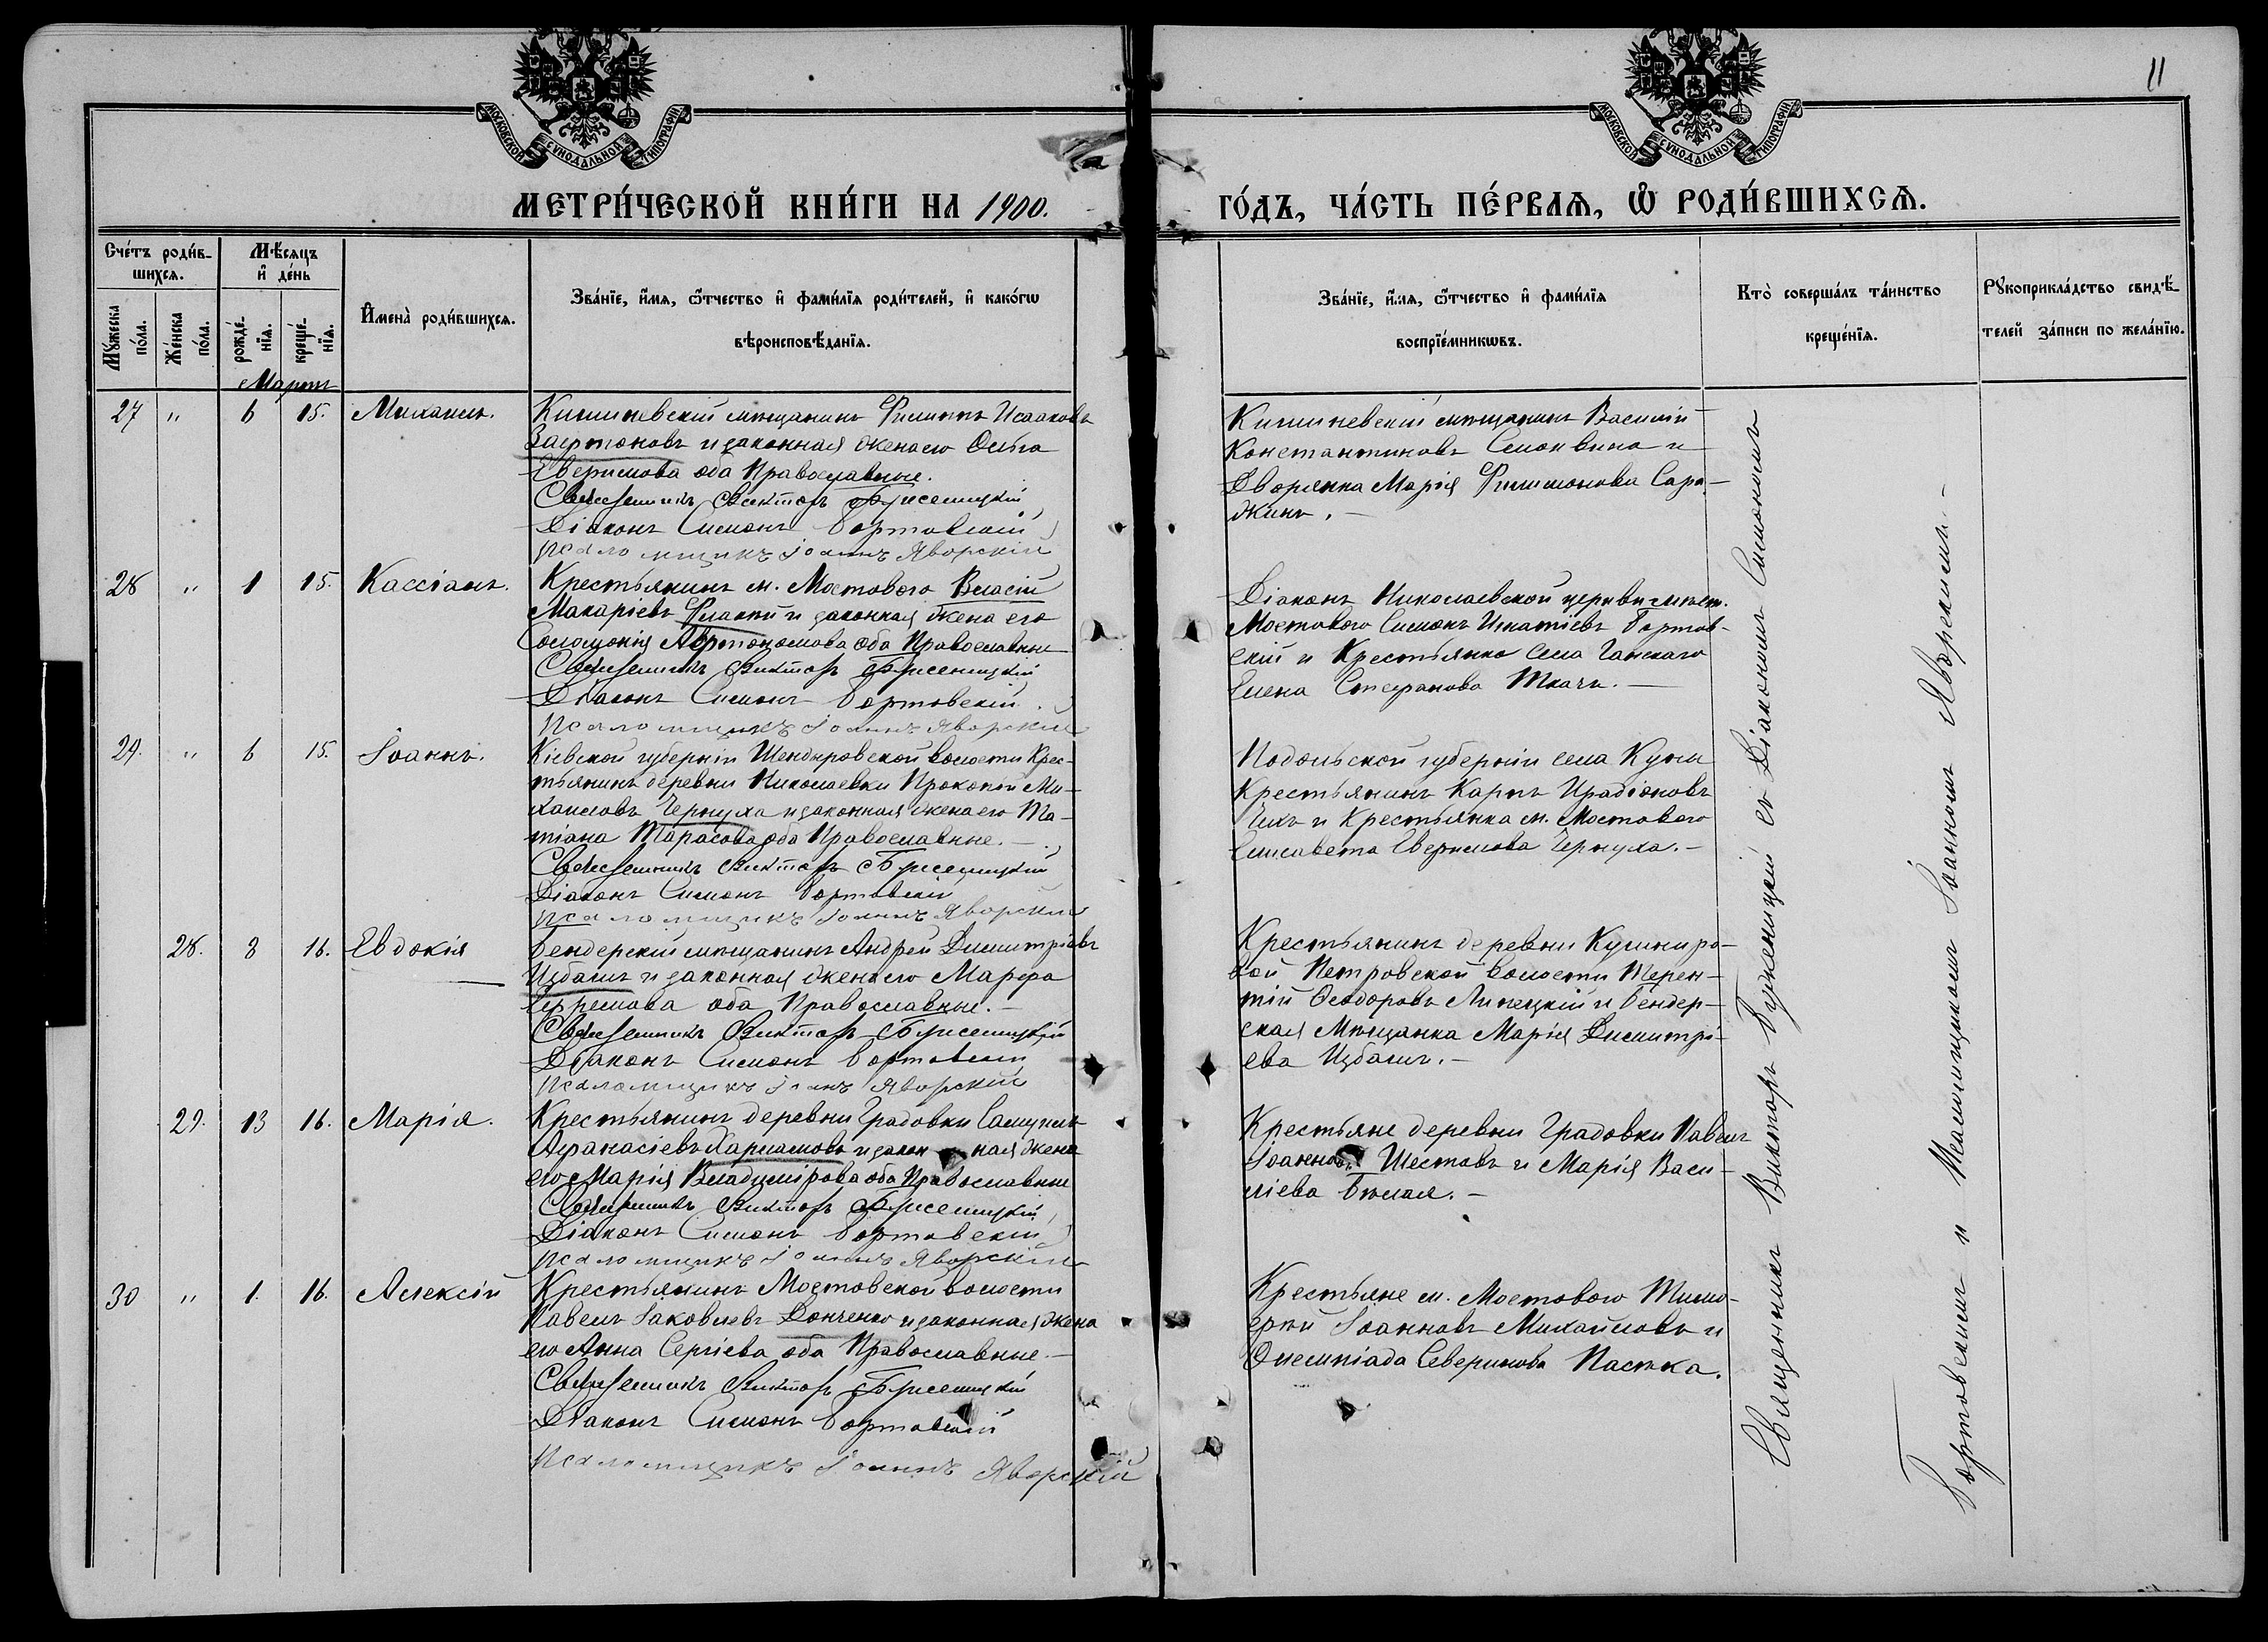 11
МОСКОВСКОЙ СУНОДАЛЬНОЙ ТИПОГРАФІИ
МОСКОВСКОЙ СУНОДАЛЬНОЙ ТИПОГРАФІИ
МЕТРИ́ЧЕСКОЙ КНИ́ГИ НА 1900.
ГО́ДЪ, ЧА́СТЬ ПЕ́РВАѦ, Ѡ РОДИ́ВШИХСѦ.
Сче́тъ роди́в-
шихсѧ.
Мꙋжеска по́ла.
Же́нска по́ла.
Мѣ́сѧцъ
и҆ де́нь
рожде́-
нїѧ.
креще́-
нїѧ.
И҆мена̀ роди́вшихсѧ.
Зва́нїе, и҆́мѧ, ѻ҆́тчество и҆ фами́лїѧ роди́телей, и҆ како́гѡ
вѣроисповѣ́данїѧ.
Зва́нїе, и҆́мѧ, ѻ҆́тчество и҆ фами́лїѧ
воспрїе́мникѡвъ.
Кто̀ соверша́лъ та́инство
креще́нїѧ.
Рꙋкоприкла́дство свидѣ́-
телей за́писи по жела́нїю.
Мартъ
27 " 6 15. Михаилъ.
Кишиневскій мѣщанинъ Филиппъ Исааковъ
и законная жена его Ольга
оба Православные.
Священникъ Викторъ
Діаконъ Симонъ Бортовскій
Псаломщикъ Іоаннъ Яворскій
Кишиневскій мѣщанинъ Василій
Константиновъ и
Дворянка Марія Филимонова Сара-
жинъ.
28 " 1 15. Кассіанъ.
Крестьянинъ м. Мостового Власій
Макаріевъ и законная жена его
Соломонія Автономова оба Православные
Священникъ Викторъ
Діаконъ Симонъ Бортовскій
Псаломщикъ Іоаннъ Яворскій
Діаконъ Николаевской церкви мѣст.
Мостового Симонъ Игнатіевъ Бортов-
скій и Крестьянка села Ганскаго
Елена Стефанова Ткачъ.
29. " 6 15. Іоаннъ.
Кіевской губерніи Шендыровской волости Крес-
тьянинъ деревни Николаевки Прокопій Ми-
хаиловъ Чернуха и законная жена его Та-
тіана Тарасова оба Православные.
Священникъ Викторъ
Діаконъ Симонъ Бортовскій
Псаломщикъ Іоаннъ Яворскій
Подольской губерніи села Куны
Крестьянинъ Карпъ Иродіоновъ
и Крестьянка м. Мостового
Елисавета Чернуха.
28. 8 16. Евдокія
Бендерскій мѣщанинъ Андрей Димитріевъ
Избашъ и законная жена его Марфа
Ефремова оба Православные.
Священникъ Викторъ
Діаконъ Симонъ Бортовскій
Псаломщикъ Іоаннъ Яворскій
Крестьянинъ деревни Кушниро-
вой Петровской волости Терен-
тій Ѳеодоровъ Липецкій и Бендер-
ская Мѣщанка Марія Димитрі-
ева Избашъ.
29. 13 16. Марія.
Крестьянинъ деревни Градовки Самуилъ
Афанасіевъ Харламовъ и закон ная жена
его Марія Владимірова оба Православные
Священникъ Викторъ
Діаконъ Симонъ Бортовскій
Псаломщикъ Іоаннъ Яворскій
Крестьяне деревни Градовки Павелъ
Іоанновъ Шестовъ и Марія Васи-
ліева Бѣлая.
30 " 1. 16. Алексій
Крестьянинъ Мостовской волости
Павелъ Іаковлевъ Донченко и законная жена
его Анна Сергіева оба Православные.
Священникъ Викторъ
Діаконъ Симонъ Бортовскій
Псаломщикъ Іоаннъ Яворскій
Крестьяне м. Мостового Тимо-
фей Іоанновъ Михайловъ и
Олимпіада Северинова Пастка.
Священникъ Викторъ съ Діакономъ Симономъ
Бортовскимъ и Псаломщикомъ Іоанномъ Яворскимъ.